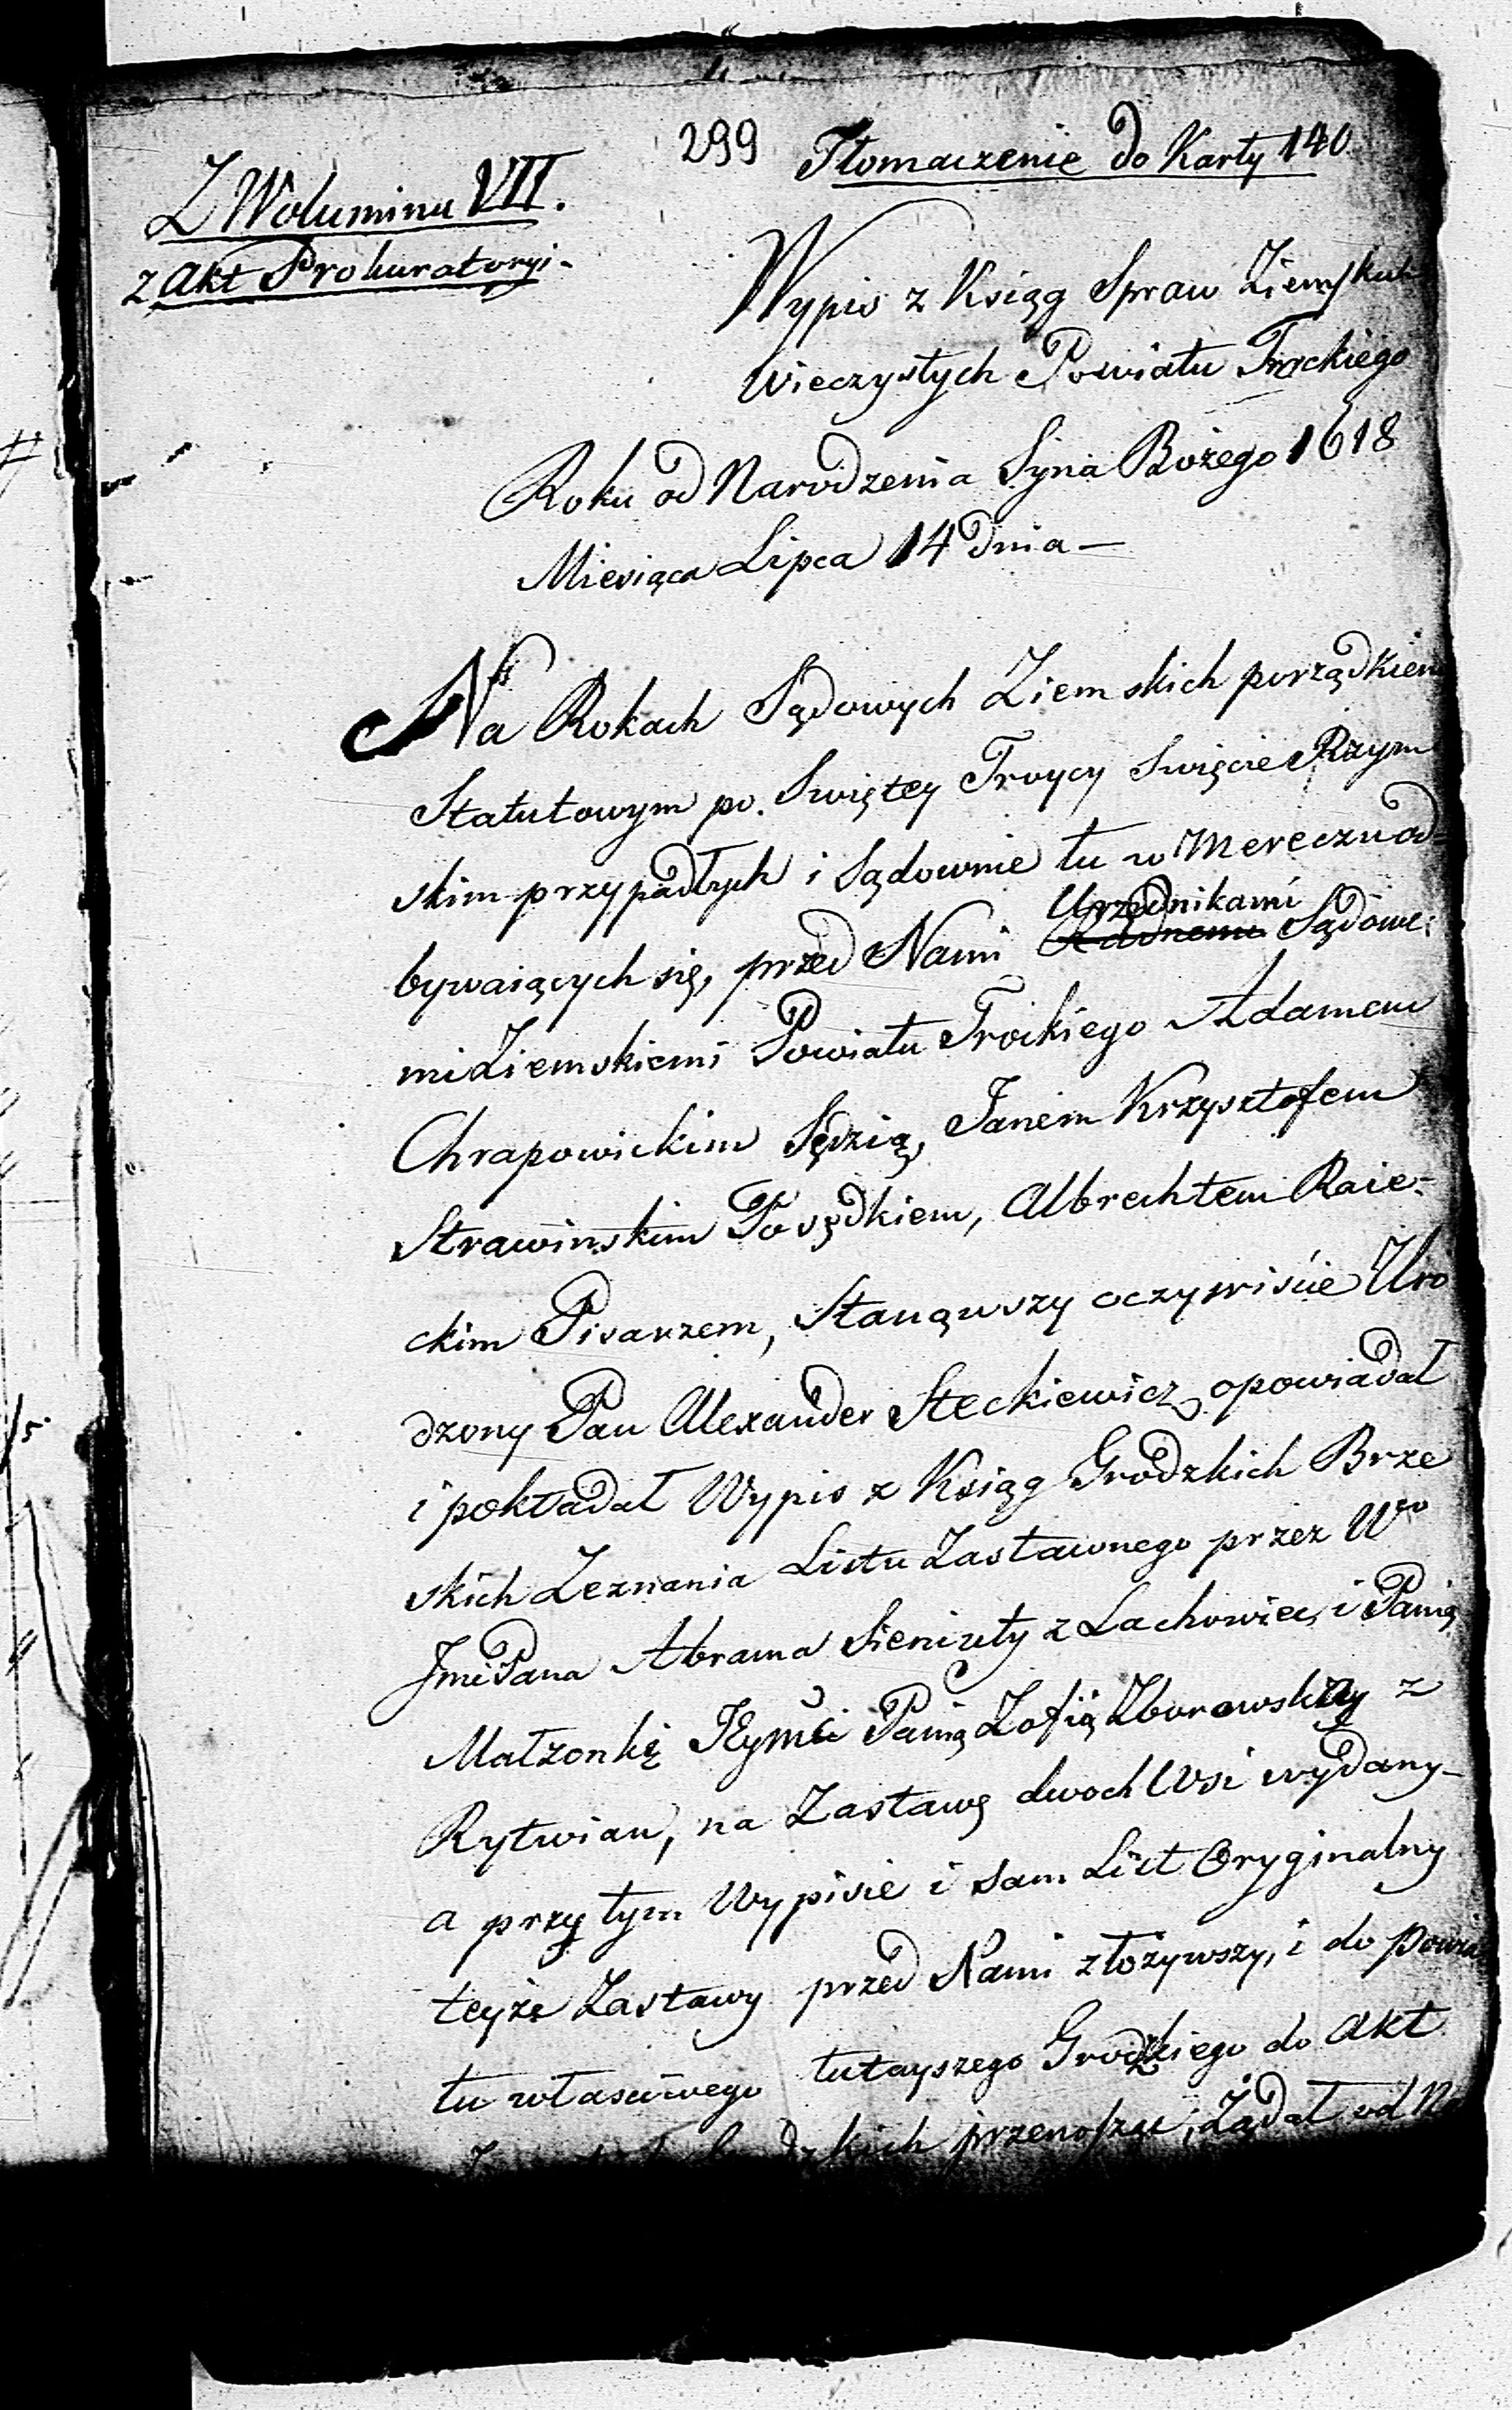 299
Tłomaczenie do Karty 140
Z Woluminu VII.
z Akt Prokuratoryi-
Wypis z Ksiąg Spraw Ziemskich
Wieczystych Powiatu Trockiego
Roku od Narodzenia Syna Bożego 1618
Miesiąca Lipca 14 dnia —
Na Rokach Sądowych Ziemskich porządkiem
Statutowym po Swiętey Troycy Swięcie Rzym
skim przypadłych i Sądownie tu w Mereczu od-
Urzędnikami
bywaiących się, przed Nami Sądowe-
mi Ziemskiemi Powiatu Trockiego Adamem
Chrapowickim Sędzią, Janem Krzysztofem
Strawinskim Podsędkiem, Albrechtem Raie-
ckim Pisarzem, Stanąwszy oczywiście Uro
dzony Pan Alexander Steckiewicz opowiadał
i pokładał Wypis z Ksiąg Grodzkich Brze
skich Zeznania Listu Zastawnego przez Wgo
JmiPana Abrama Sieniuty z Lachowiec i Panią
Małzonkę Jeymći Panią Zofią Zborowską z
Rytwian, na Zastawę dwoch Wsi wydany-
a przy tym Wypisie i sam List Oryginalny
teyże Zastawy przed Nami złożywszy, i do powia
tu własciwego tutayszego Grodzkiego do Akt
przenosząc, Żądał od N